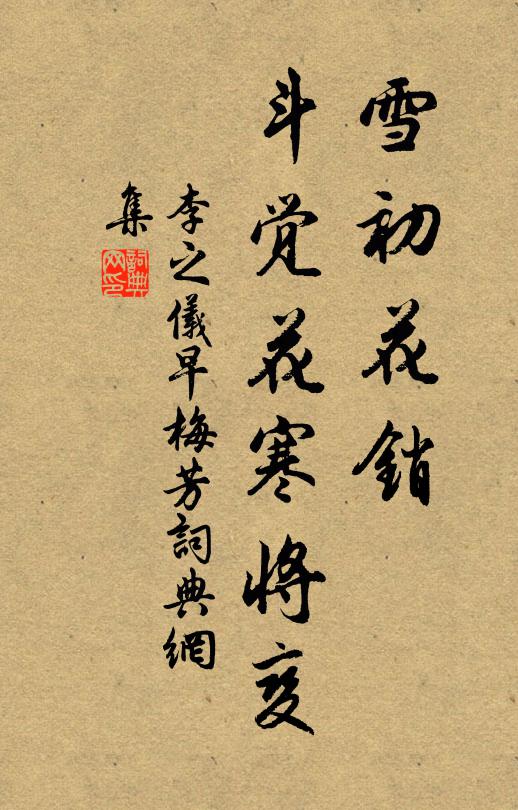 雪初花销
斗觉花寒将变
李之儀早梅芳詞典網
集
詞典
网印